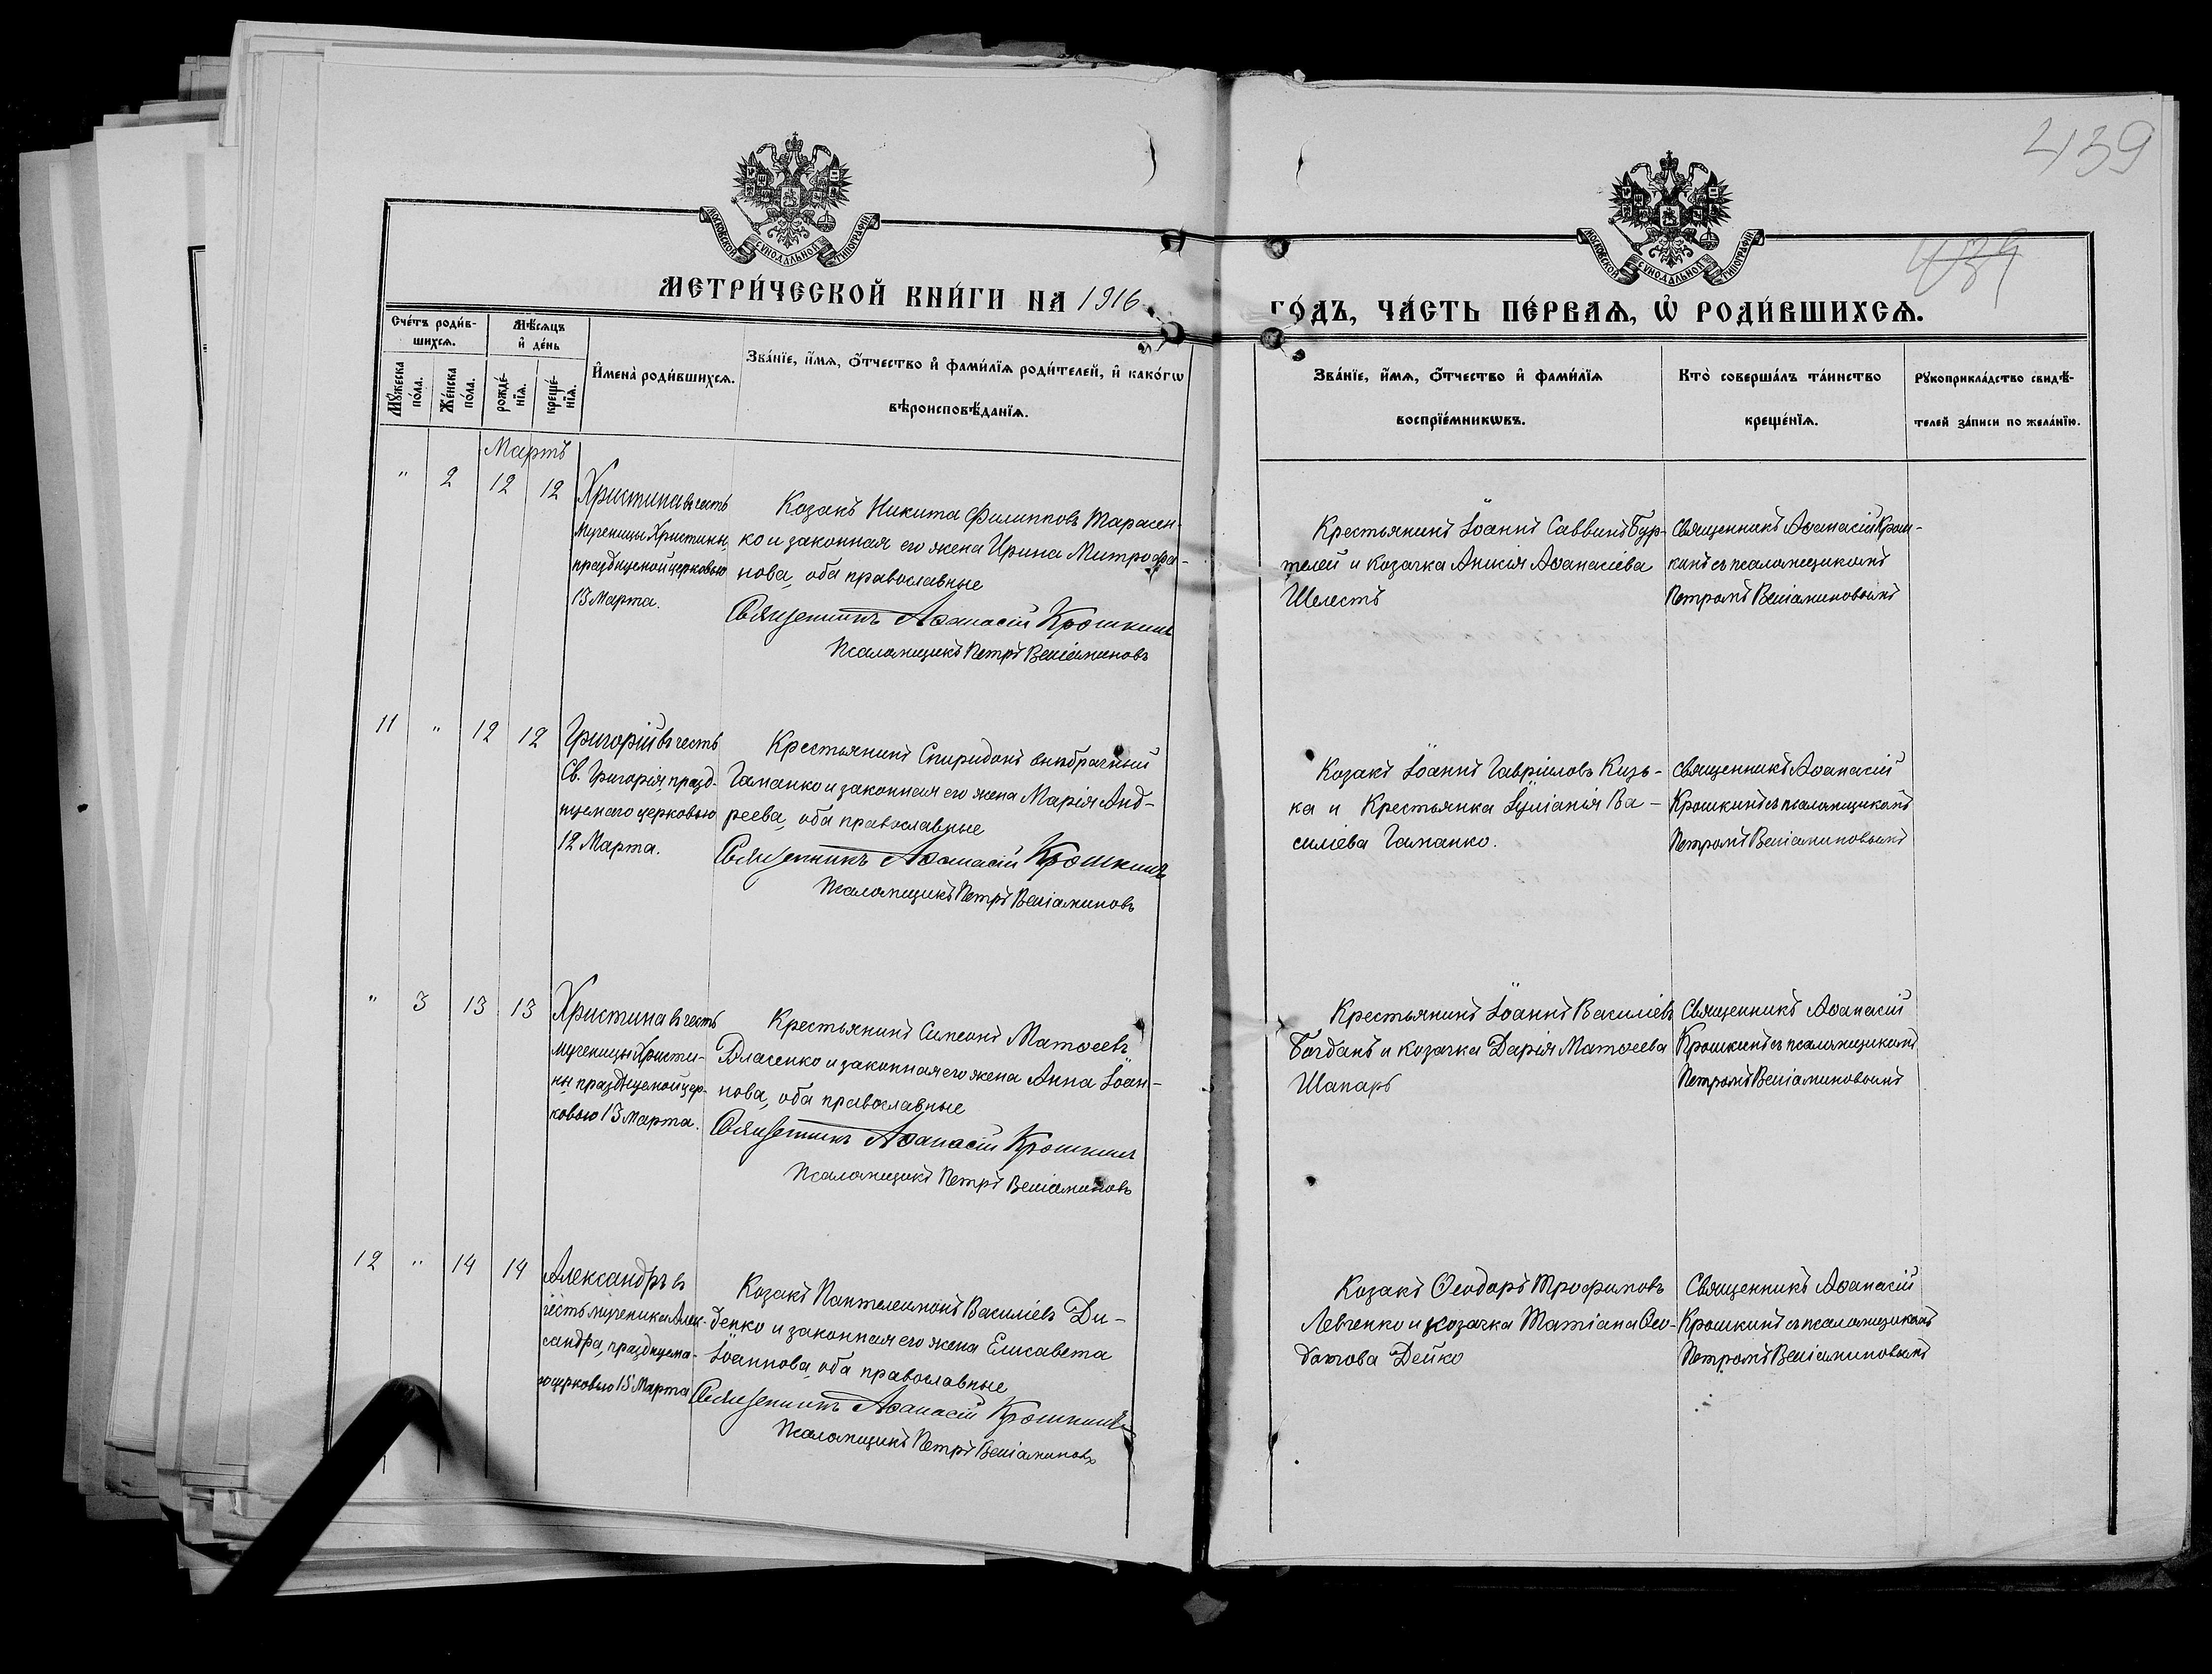 439
439
МОСКОВСКОЙ СѴНОДАЛЬНОЙ ТИПОГРАФІИ
МОСКОВСКОЙ СѴНОДАЛЬНОЙ ТИПОГРАФІИ
МЕТРИ́ЧЕСКОЙ КНИ́ГИ НА 1916
ГО́ДЪ, ЧА́СТЬ ПЕ́РВАѦ, Ѡ҆ РОДИ́ВШИХСѦ.
Сче́тъ роди́в-
шихсѧ.
Мꙋ́жеска
по́ла.
Же́нска
по́ла.
Мѣ́сѧцъ
и҆ де́нь
рожде́-
нїѧ.
креще́-
нїѧ.
И҆мена̀ роди́вшихсѧ.
Зва́нїе, и҆́мѧ, ѻ҆́тчество и҆ фами́лїѧ роди́телей, и҆ како́гѡ
вѣроисповѣ́данїѧ.
Зва́нїе, и҆́мѧ, ѻ҆́тчество и҆ фами́лїѧ
воспрїе́мникѡвъ.
Кто̀ соверша́лъ та́инство
креще́нїѧ.
Рꙋкоприкла́дство свидѣ́-
телей за́писи по жела́нїю.
Мартъ
" 2 12 12
Христина въ честь
мученицы Христины,
празднуемой церковью
13 Марта.
Козакъ Никита Филипповъ Тарасен-
ко и законная его жена Ирина Митрофа-
нова, оба православные
Священникъ Аѳанасій Крошкинъ
Псаломщикъ Петръ Веніаминовъ
Крестьянинъ Іоаннъ Саввинъ Бур-
телей и козачка Анисія Аѳанасіева
Шелестъ
Священникъ Аѳанасій Крош-
кинъ съ псаломщикомъ
Петромъ Веніаминовымъ
11 " 12 12
Григорій въ честь
Св. Григорія празд-
нуемаго церковью
12 Марта.
Крестьянинъ Спиридонъ внѣбрачный
Гаманко и законная его жена Марія Анд-
реева, оба православные
Священникъ Аѳанасій Крошкинъ
Псаломщикъ Петръ Веніаминовъ
Козакъ Іоаннъ Гавріиловъ Кизь-
ка и Крестьянка Іуліанія Ва-
силіева Гаманко.
Священникъ Аѳанасій
Крошкинъ съ псаломщикомъ
Петромъ Веніаминовымъ
" 3 13 13
Христина въ честь
мученицы Христи-
ны, празднуемой цер-
ковью 13 Марта.
Крестьянинъ Симеонъ Матѳеевъ
Власенко и законная его жена Анна Іоан-
нова, оба православные
Священникъ Аѳанасій Крошкинъ
Псаломщикъ Петръ Веніаминовъ
Крестьянинъ Іоаннъ Василіевъ
Богданъ и козачка Дарія Матѳеева
Шапарь
Священникъ Аѳанасій
Крошкинъ съ псаломщикомъ
Петромъ Веніаминовымъ
12 " 14 14
Александръ въ
честь мученика Алек-
сандра, празднуема-
го церковью 15 Марта
Козакъ Пантелеимонъ Василіевъ Ди-
денко и законная его жена Елисавета
Іоаннова, оба православные
Священникъ Аѳанасій Крошкинъ
Псаломщикъ Петръ Веніаминовъ
Козакъ Ѳеодоръ Трофимовъ
Левченко и козачка Татіана Ѳео-
дотова Дейко
Священникъ Аѳанасій
Крошкинъ съ псаломщикомъ
Петромъ Веніаминовымъ